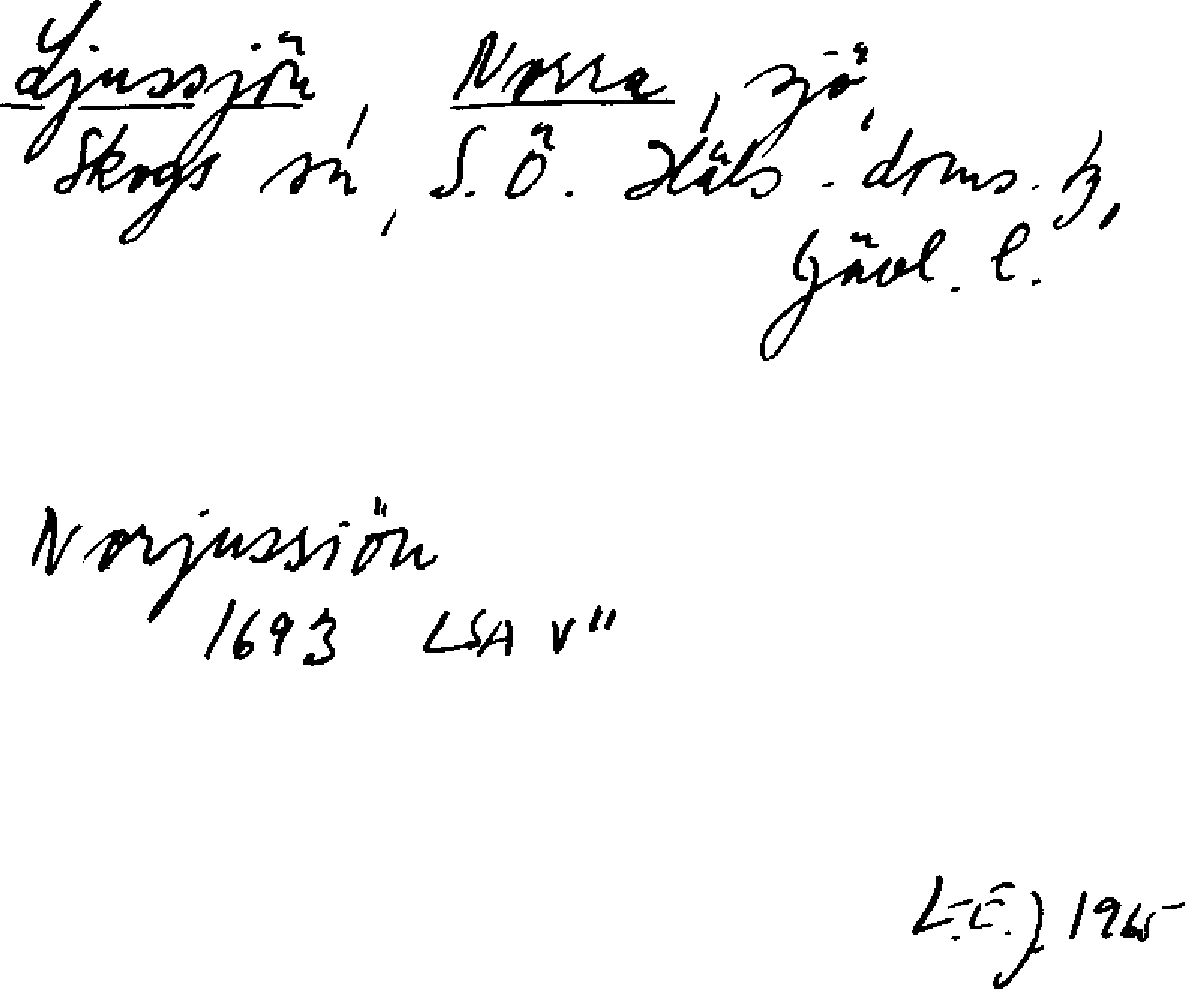 Ljussjön, Norra, sjö,
Skogs sn, S. Ö. Häls. doms. h,
Gävl. l.
Norjussiön
1693 LSA V"
L.E.J. 1965